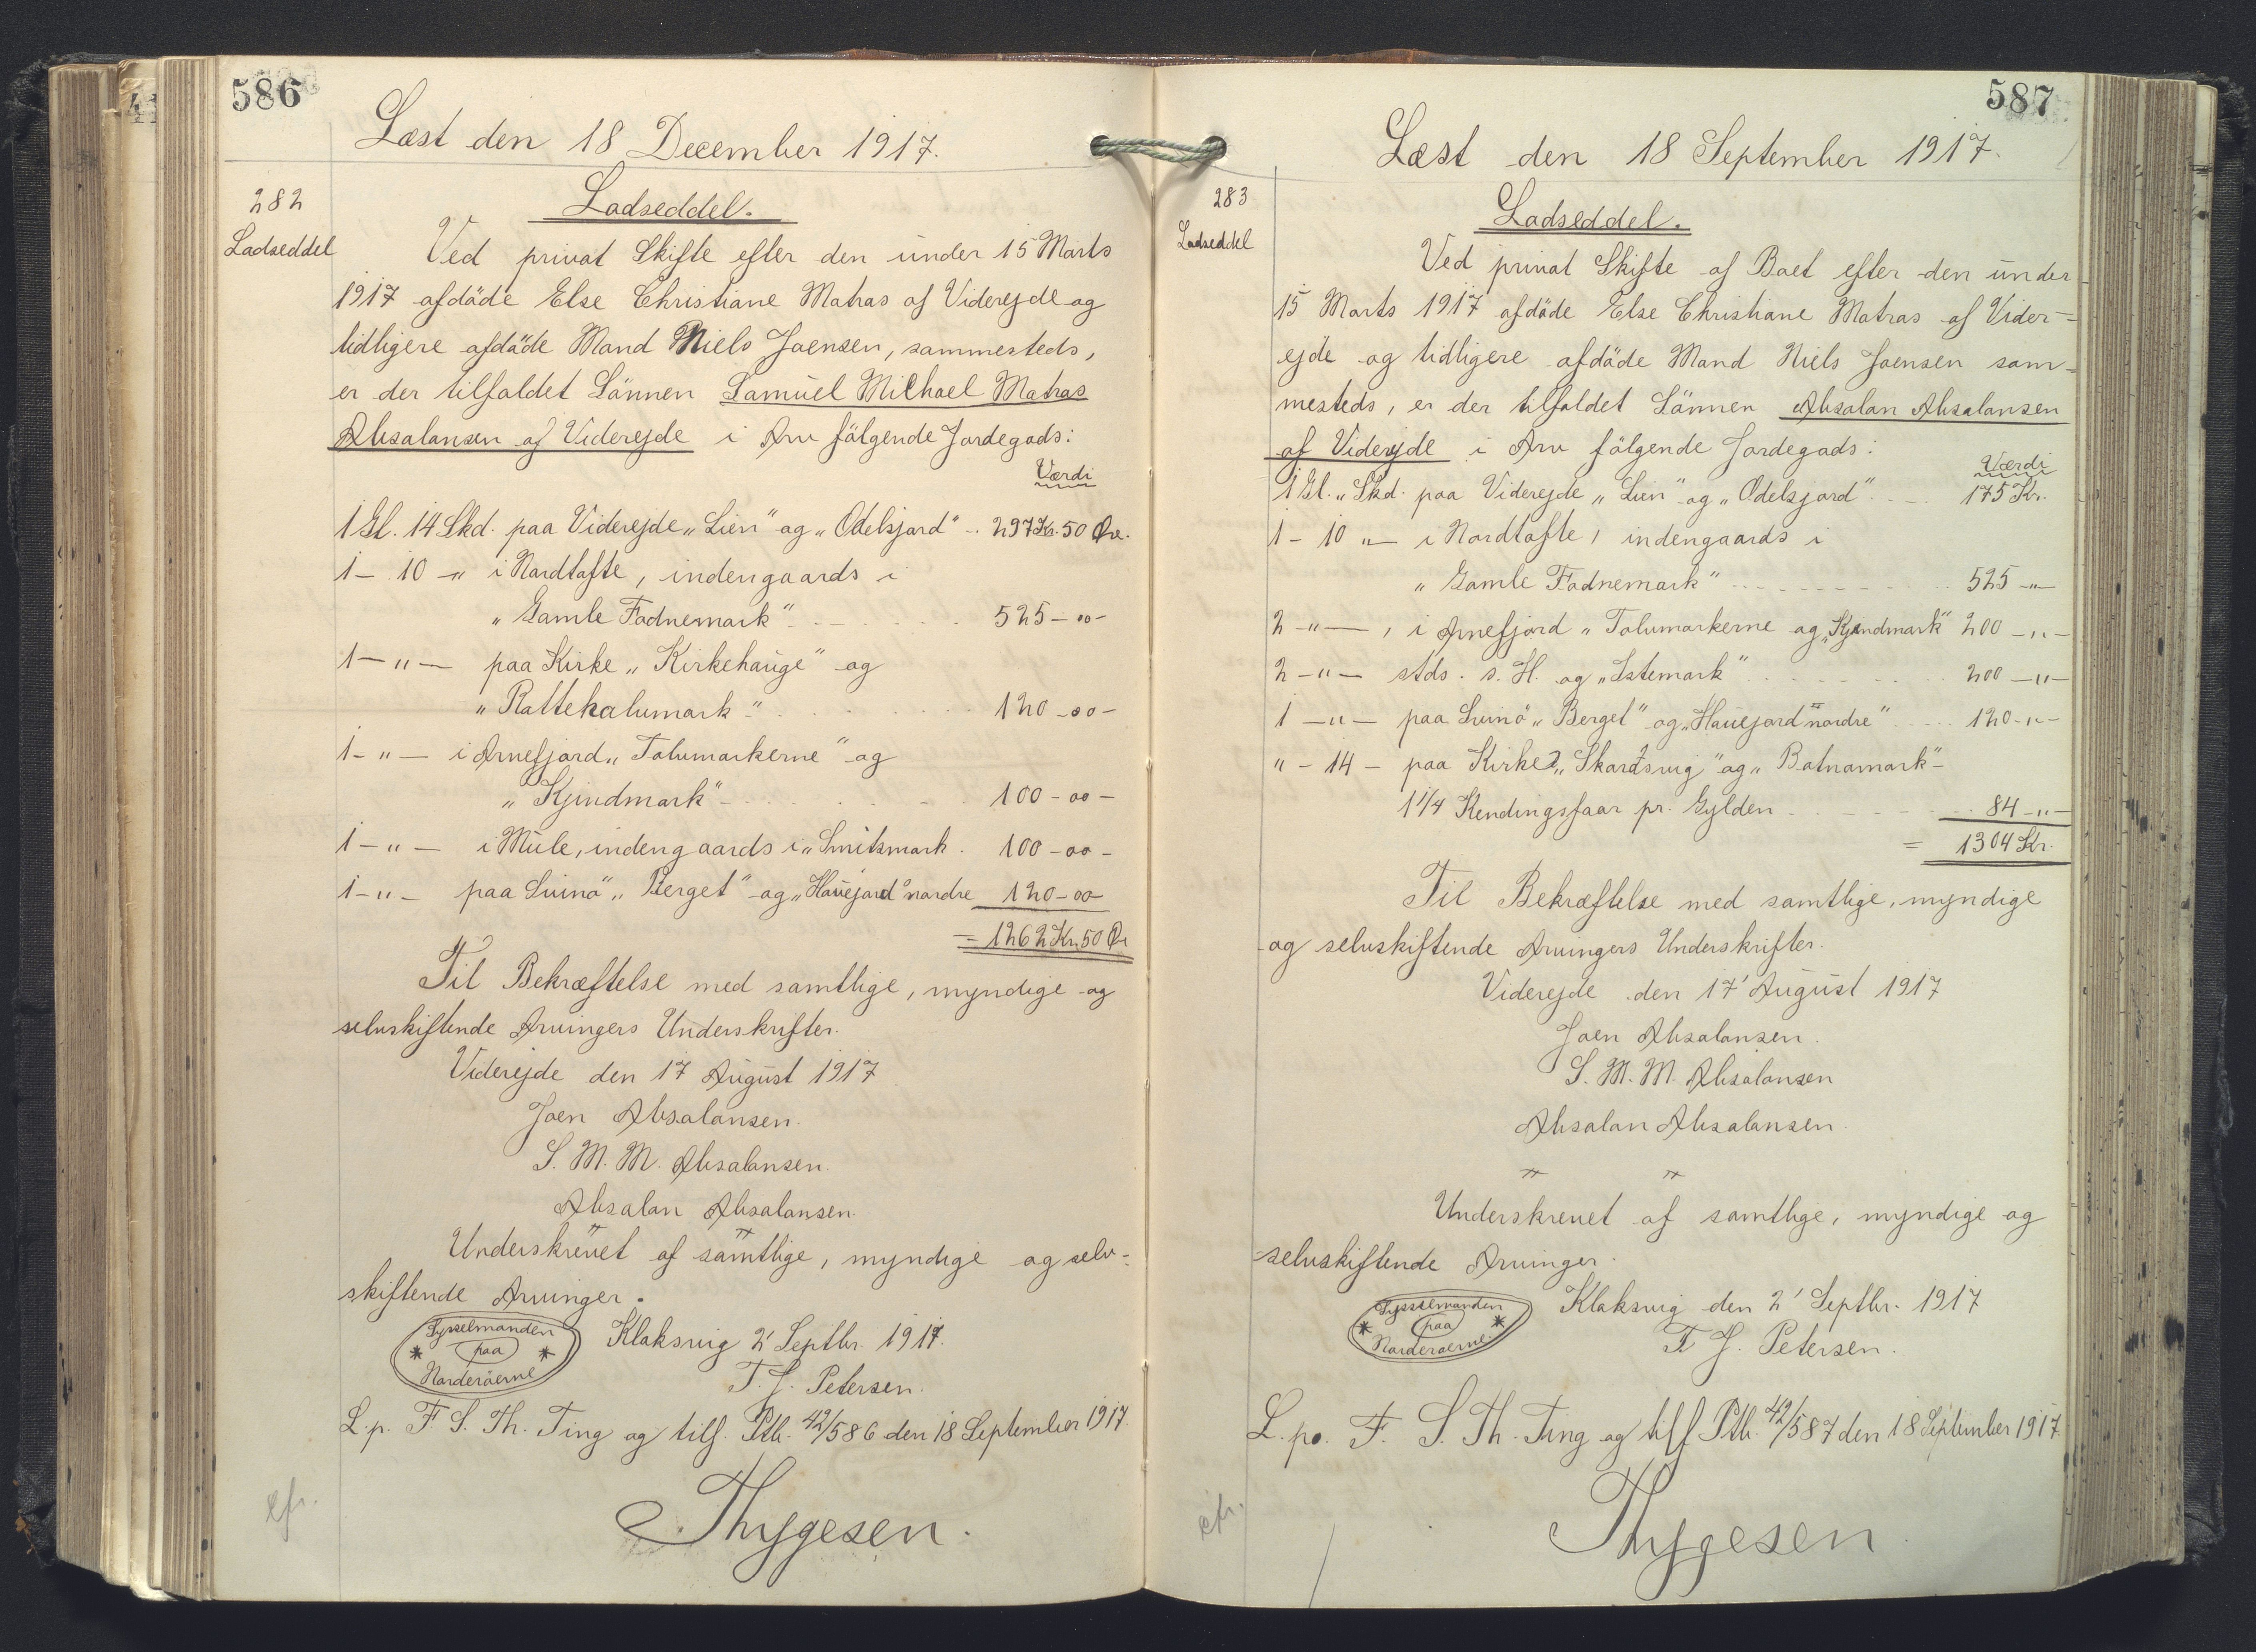 586
Læst den 18 December 1917.
282
Lodseddel
Lodseddel.
Ved privat Skifte efter den under 15 Marts
1917 afdöde Else Christiane Matras af Viderejde og
tidligere afdöde Mand Niels Joensen, sammesteds,
er der tilfaldet Sönnen Samuel Michael Matras
Absalonsen af Viderejde i Arv fölgende Jordegods:
Værdi
1 Gl. 14 Skd. paa Viderejde „Lien" og „Odelsjord" .. 297 Kr. 50 Øre.
1 – 10 –„ i Nordtofte, indengaards i
„Gamle Fadnemark" 525 – 00 –
1 – „ – paa Kirke „Kirkehauge" og
„Rattekalumark" 120 – 00 –
1 – „ – i Arnefjord „Tolumarkerne" og
„Kjindmark" 100 – 00 –
1 – „ – i Mule, indengaards i „Smitsmark. 100 – 00 –
1 – „ – paa Svinö „Berget" og „Hauejord" nordre 120 – 00 –
= 1262 Kr. 50 Ør
Til Bekræftelse med samtlige, myndige og
selvskiftende Arvingers Underskrifter.
Viderejde den 17 August 1917
Joen Absalonsen.
S. M. M. Absalonsen.
Absalon Absalonsen.
Underskrevet af samtlige, myndige og selv-
skiftende Arvinger.
Sysselmanden
* paa *
Norderöerne
Klaksvig 2' Septbr. 1917.
T. J. Petersen.
L. p. F. S. Th. Ting og tilf. Ptb. 42/586 den 18 September 1917.
cfr.
Thygesen.
587
Læst den 18 September 1917.
283
Lodseddel
Lodseddel.
Ved privat Skifte af Boet efter den under
15 Marts 1917 afdöde Else Christiane Matras af Vider-
ejde og tidligere afdöde Mand Niels Joensen sam-
mesteds, er der tilfaldet Sönnen Absalon Absalonsen
af Viderejde i Arv fölgende Jordegods:
Værdi
1 Gl. „ Skd. paa Viderejde „Lien" og „Odelsjord" 175 Kr.
1 – 10 „– i Nordtofte, indengaards i
„Gamle Fadnemark" 525 –„–
2 –„–, i Arnefjord „Tolumarkerne og „Kjindmark" 200 –„–
2 –„– stds. s. H. og „Istemark" 200 –„–
1 –„– paa Svinö „Berget" og „Hauejord nordre" 120 –„–
„ – 14 – paa Kirke „Skardsvig" og „Botnamark"
1 1/4 Kendingsfaar pr. Gylden 84 –„–
= 1304 Kr.
Til Bekræftelse med samtlige, myndige
og selvskiftende Arvingers Underskrifter.
Viderejde den 17' August 1917
Joen Absalonsen.
S. M. M. Absalonsen
Absalon Absalonsen.
Underskrevet af samtlige, myndige og
selvskiftende Arvinger.
Sysselmanden
* paa *
Norderöerne
Klaksvig den 2' Septbr. 1917
T. J. Petersen.
L. po. F. S. Th. Ting og tilf Ptb. 42/587 den 18 September 1917.
cfr.
Thygesen.